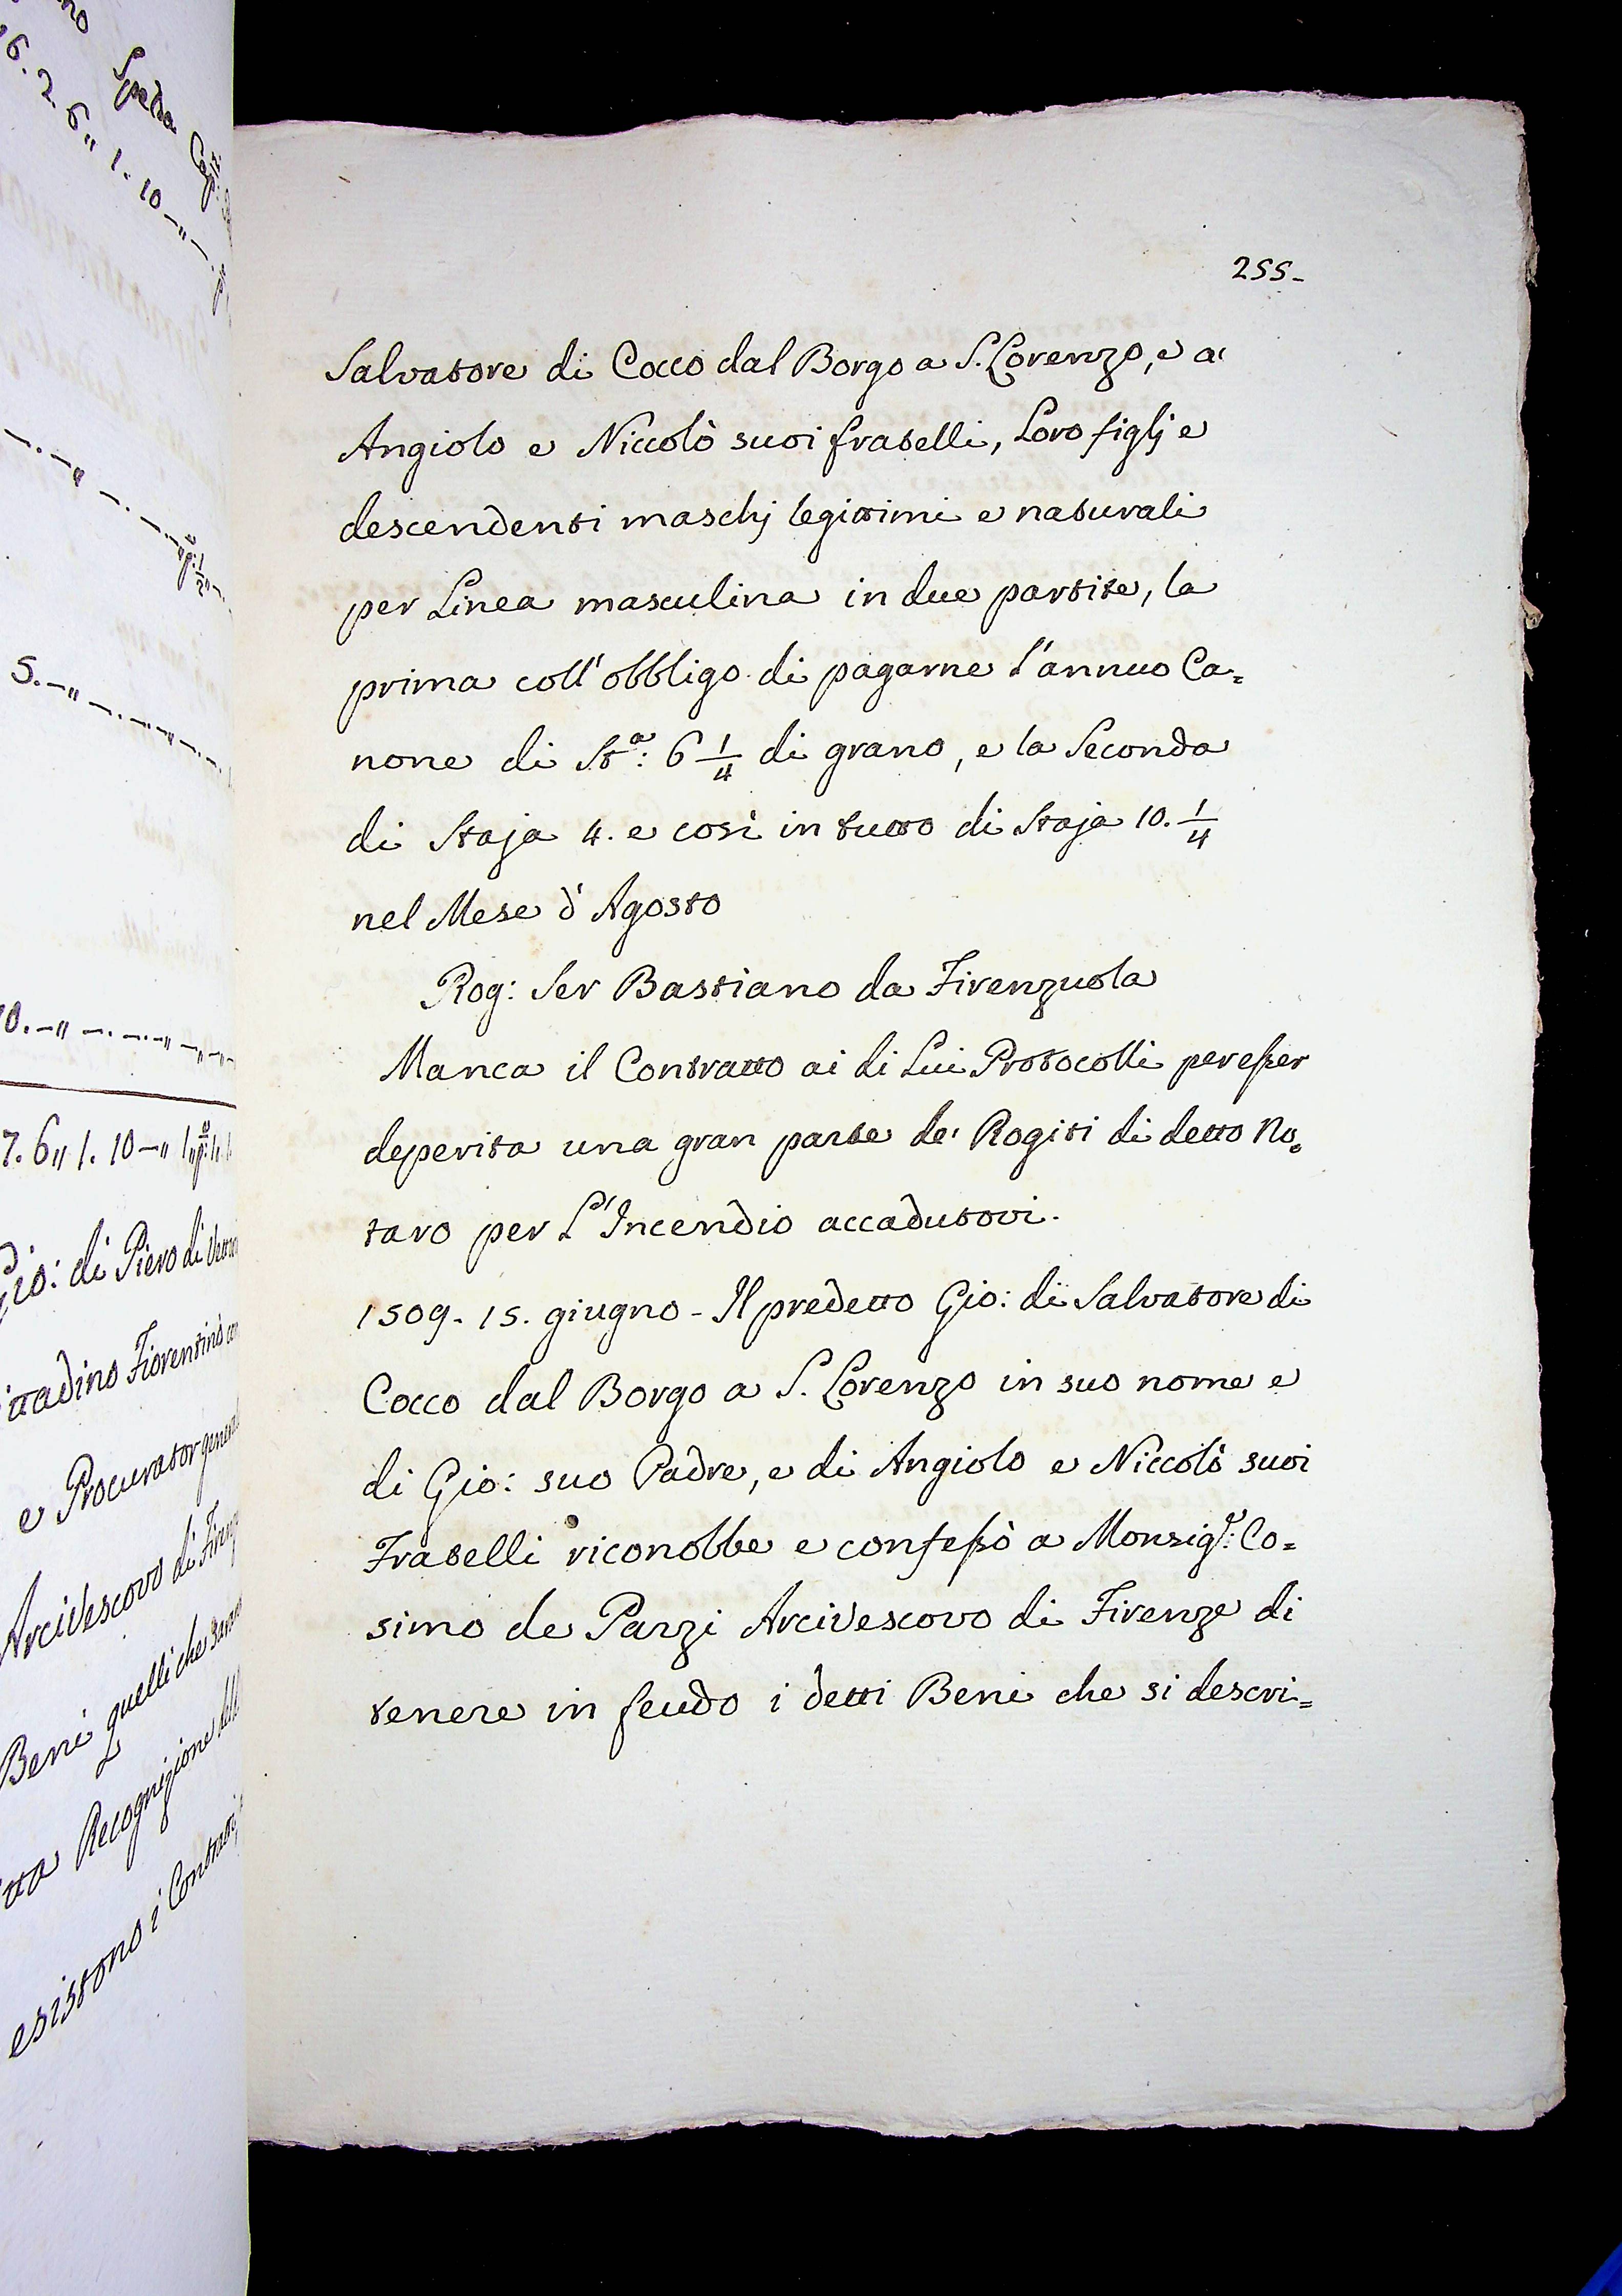 255-
Salvatore di Cocco dal Borgo a S. Lorenzo, e a'
Angiolo e Niccolò suoi fratelli, Loro figlj e
descendenti maschj legittimi e naturali
per Linea masculina in due partite, la
prima coll'obbligo di pagarne l'annuo Ca=
none di Stª: 6 1/4 di grano, e la Seconda
di Staja 4. e così in tutto di Staja 10. 1/4
nel Mese d'Agosto
Rog: Ser Bastiano da Firenzuola
Manca il Contratto ai di Lui Protocolli per esser
deperita una gran parte de' Rogiti di detto No=
taro per L'Incendio accadutovi.
1509. 15. giugno - Il predetto Gio: di Salvatore di
Cocco dal Borgo a S. Lorenzo in suo nome e
di Gio: suo Padre, e di Angiolo e Niccolò suoi
Fratelli riconobbe e confessò a Monsigr: Co=
simo de Pazzi Arcivescovo di Firenze di
tenere in feudo i detti Beni che si descri=
6. 2. 6" 1. 10-"-
5.-"
7. 6" 1. 10-"
Gio: di Piero di
Fiorentino
e Procurator
Arcivescovo di
Beni quelli che
Recognizione
esistono i